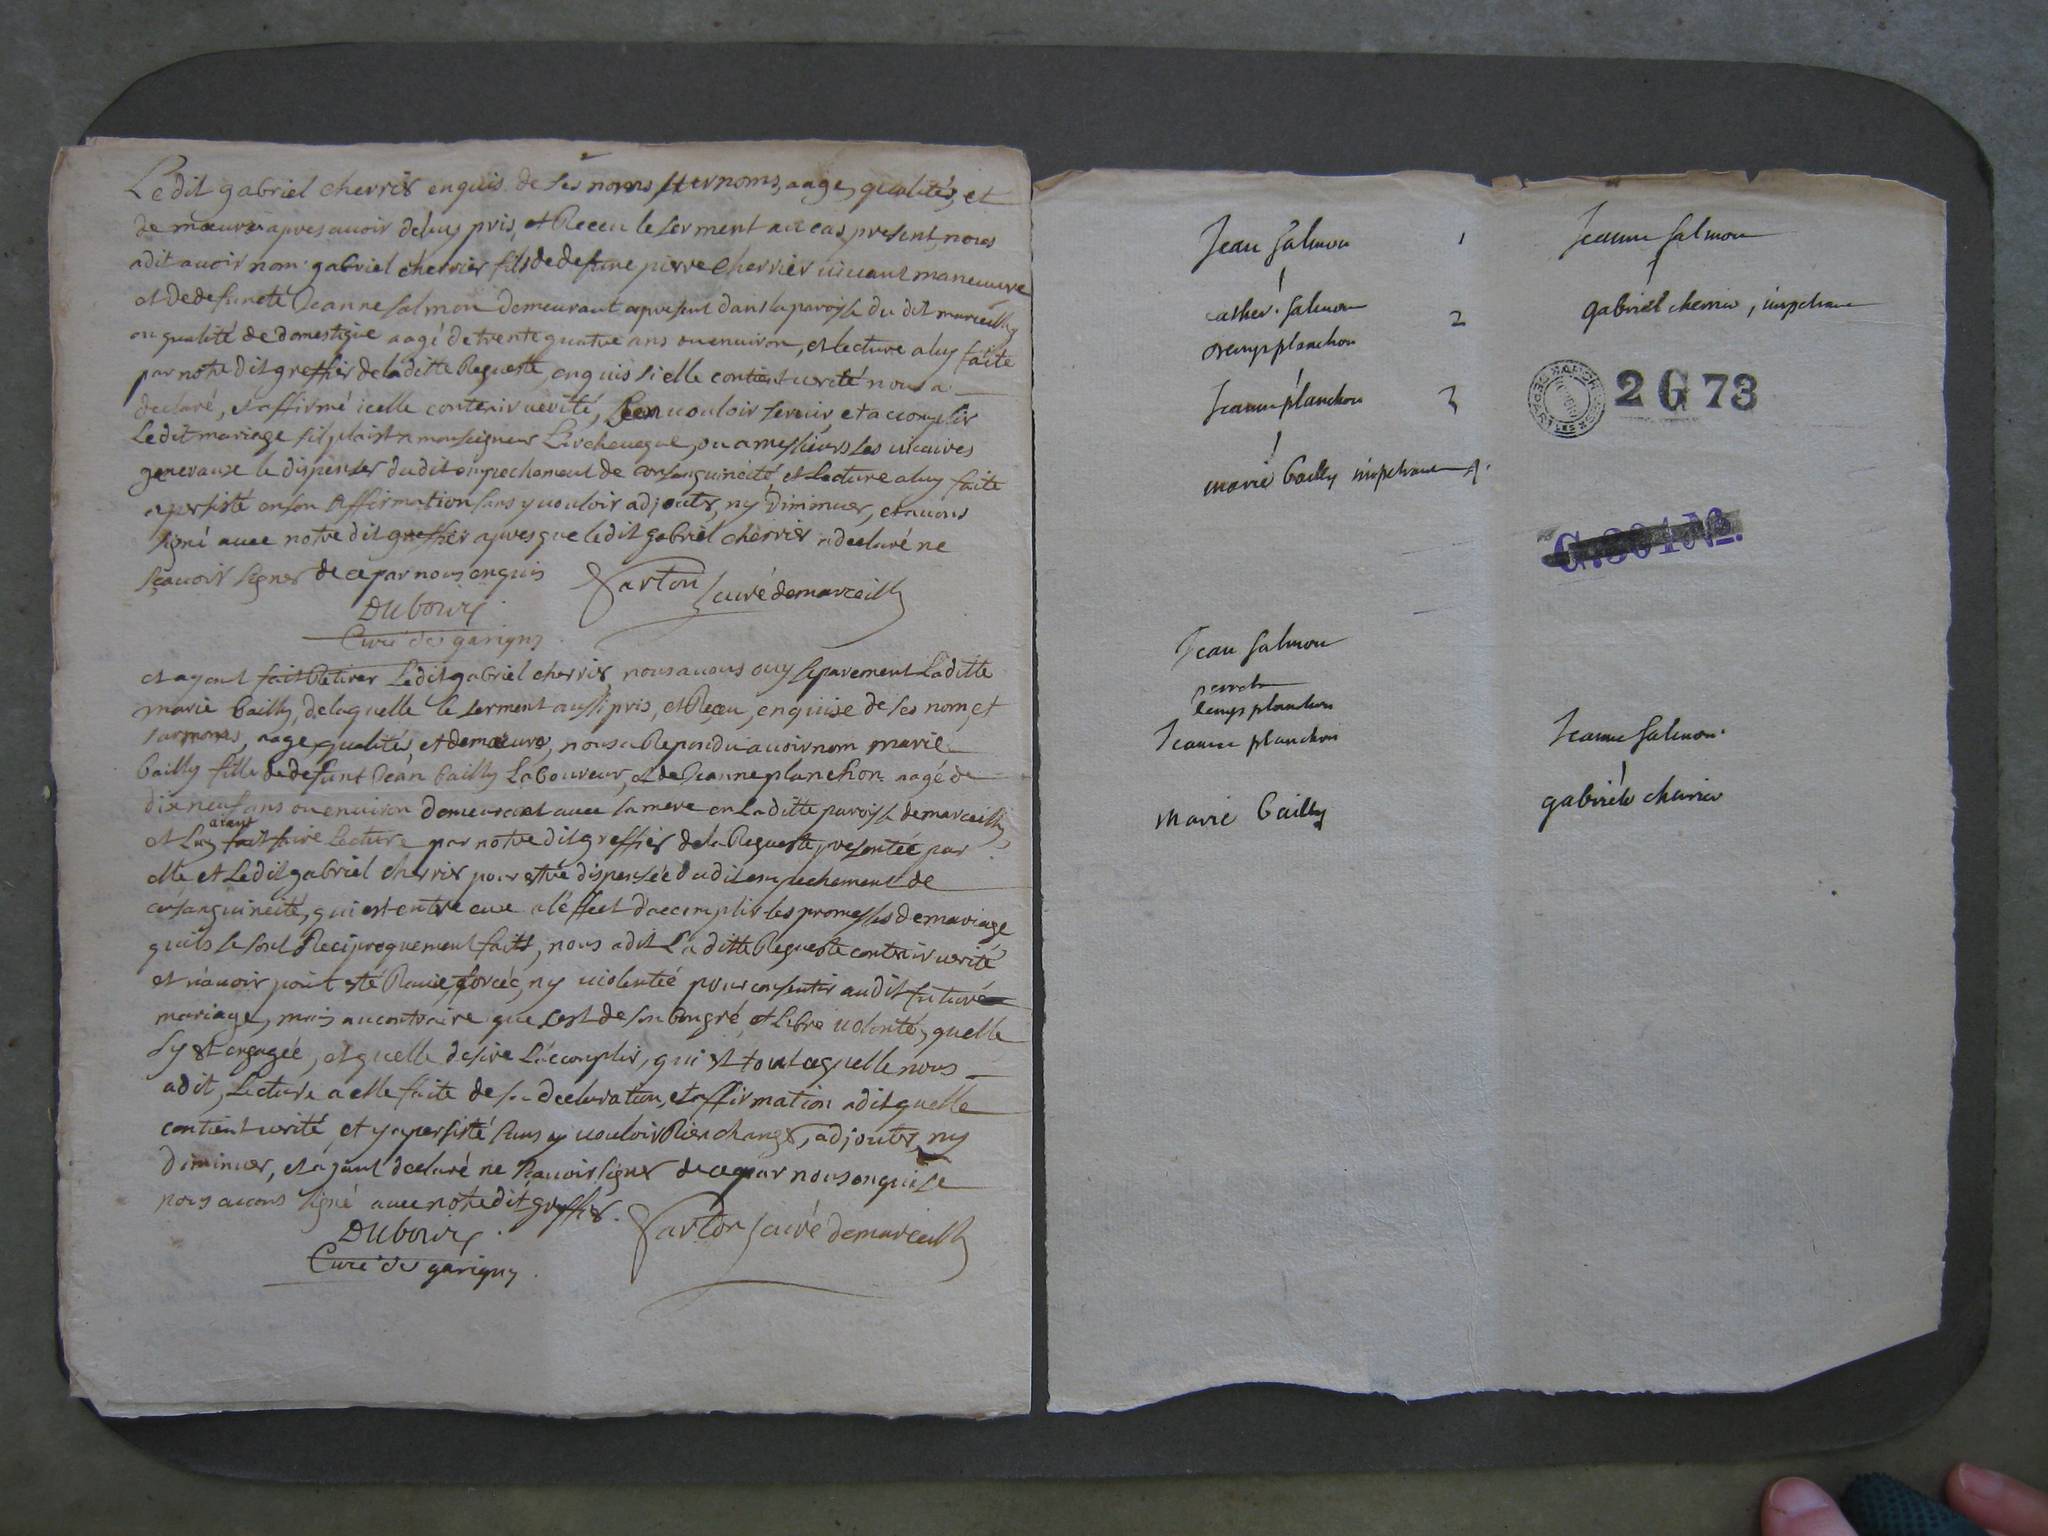 Le dit gabriel cherrier enquis de ses noms surnoms, aage, qualités, et
de mœurs apres avoir de luy pris, et Receu le serment au cas present, nous
a dit avoir nom gabriel cherrier fils de defunt pierre Cherrier vivant maneuvre
et de defuncte Jeanne Salmon demeurant a present dans la paroisse du dit marceilly
en qualité de domestique aagé de trente quatre ans ou environ, et lecture a luy faite
par notre dit greffier de la ditte Requeste, enquis si elle contient verité nous a
declaré, et affirmé icelle contenir verité, vouloir servir, et accomplir
Le dit mariage s'il plaist a monseigneur L'archeveque, ou a messieurs les vicaires
generaux le dispenser du dit empechement de consanguineité et Lecture a luy faite
a persisté en son affirmation sans y vouloir adjouter, ny diminuer, et avons
signé avec notre dit greffier apres que le dit gabriel cherrier a declaré ne
sçavoir signer de ce par nous enquis
Sarton curé de marceilly
Dubouis
Curé de garigny
et ayant fait Retirer Le dit gabriel cherrier, nous avons ouy separement La ditte
marie bailly, de laquelle le serment aussi pris, et Reçeu, enquise de ses nom, et
surnoms, aage, qualités, et demœure, nous a Repondu avoir nom marie
bailly fille de defunt Jean bailly Laboureur, et de Jeanne planchon aagé de
dix neuf ans ou environ demeurant avec sa mere en La ditte paroisse de marceilly,
aiant
et Luy fait faire Lecture par notre dit greffier de la Requeste presentée par
elle et Le dit gabriel cherrier pour estre dispensée du dit empechement de
consanguineité, qui est entre eux a l'effect d'accomplir les promesses de mariage
quils se sont Reciproquement faits, nous a dit La ditte Requeste contenir verité
et n'avoir point esté Ravie, forcée, ny violentée pour consentir au dit futur
mariage, mais au contraire que c'est de son bon gré, et Libre volonté, quelle
s'y est engagée, et quelle desire L'accomplir, qui est tout ce quelle nous
a dit, Lecture a elle faite de sa declaration, et affirmation a dit quelle
contient verité, et y a persisté sans y vouloir Rien changer, adjouter, ny
diminuer, et ayant declaré ne sçavoir signer de ce par nous enquise
nous avons signé avec notre dit greffier.
Sarton curé de marceilly
Dubouis
Curé de garigny
Jean Salmon 1 Jeanne Salmon
cather. Salmon 2 gabriel cherrier, impetrant
remy planchon
Jeanne planchon 3
marie bailly impetrante 4.
2 G 73
Jean Salmon
remy planchon
Jeanne planchon Jeanne Salmon
marie bailly gabriel cherrier